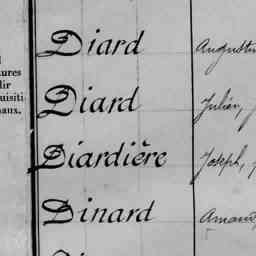 tures
dir
uisiti-
aux.
Diard Augustin
Diard Julien,
Diardière Joseph,
Dinard Amand